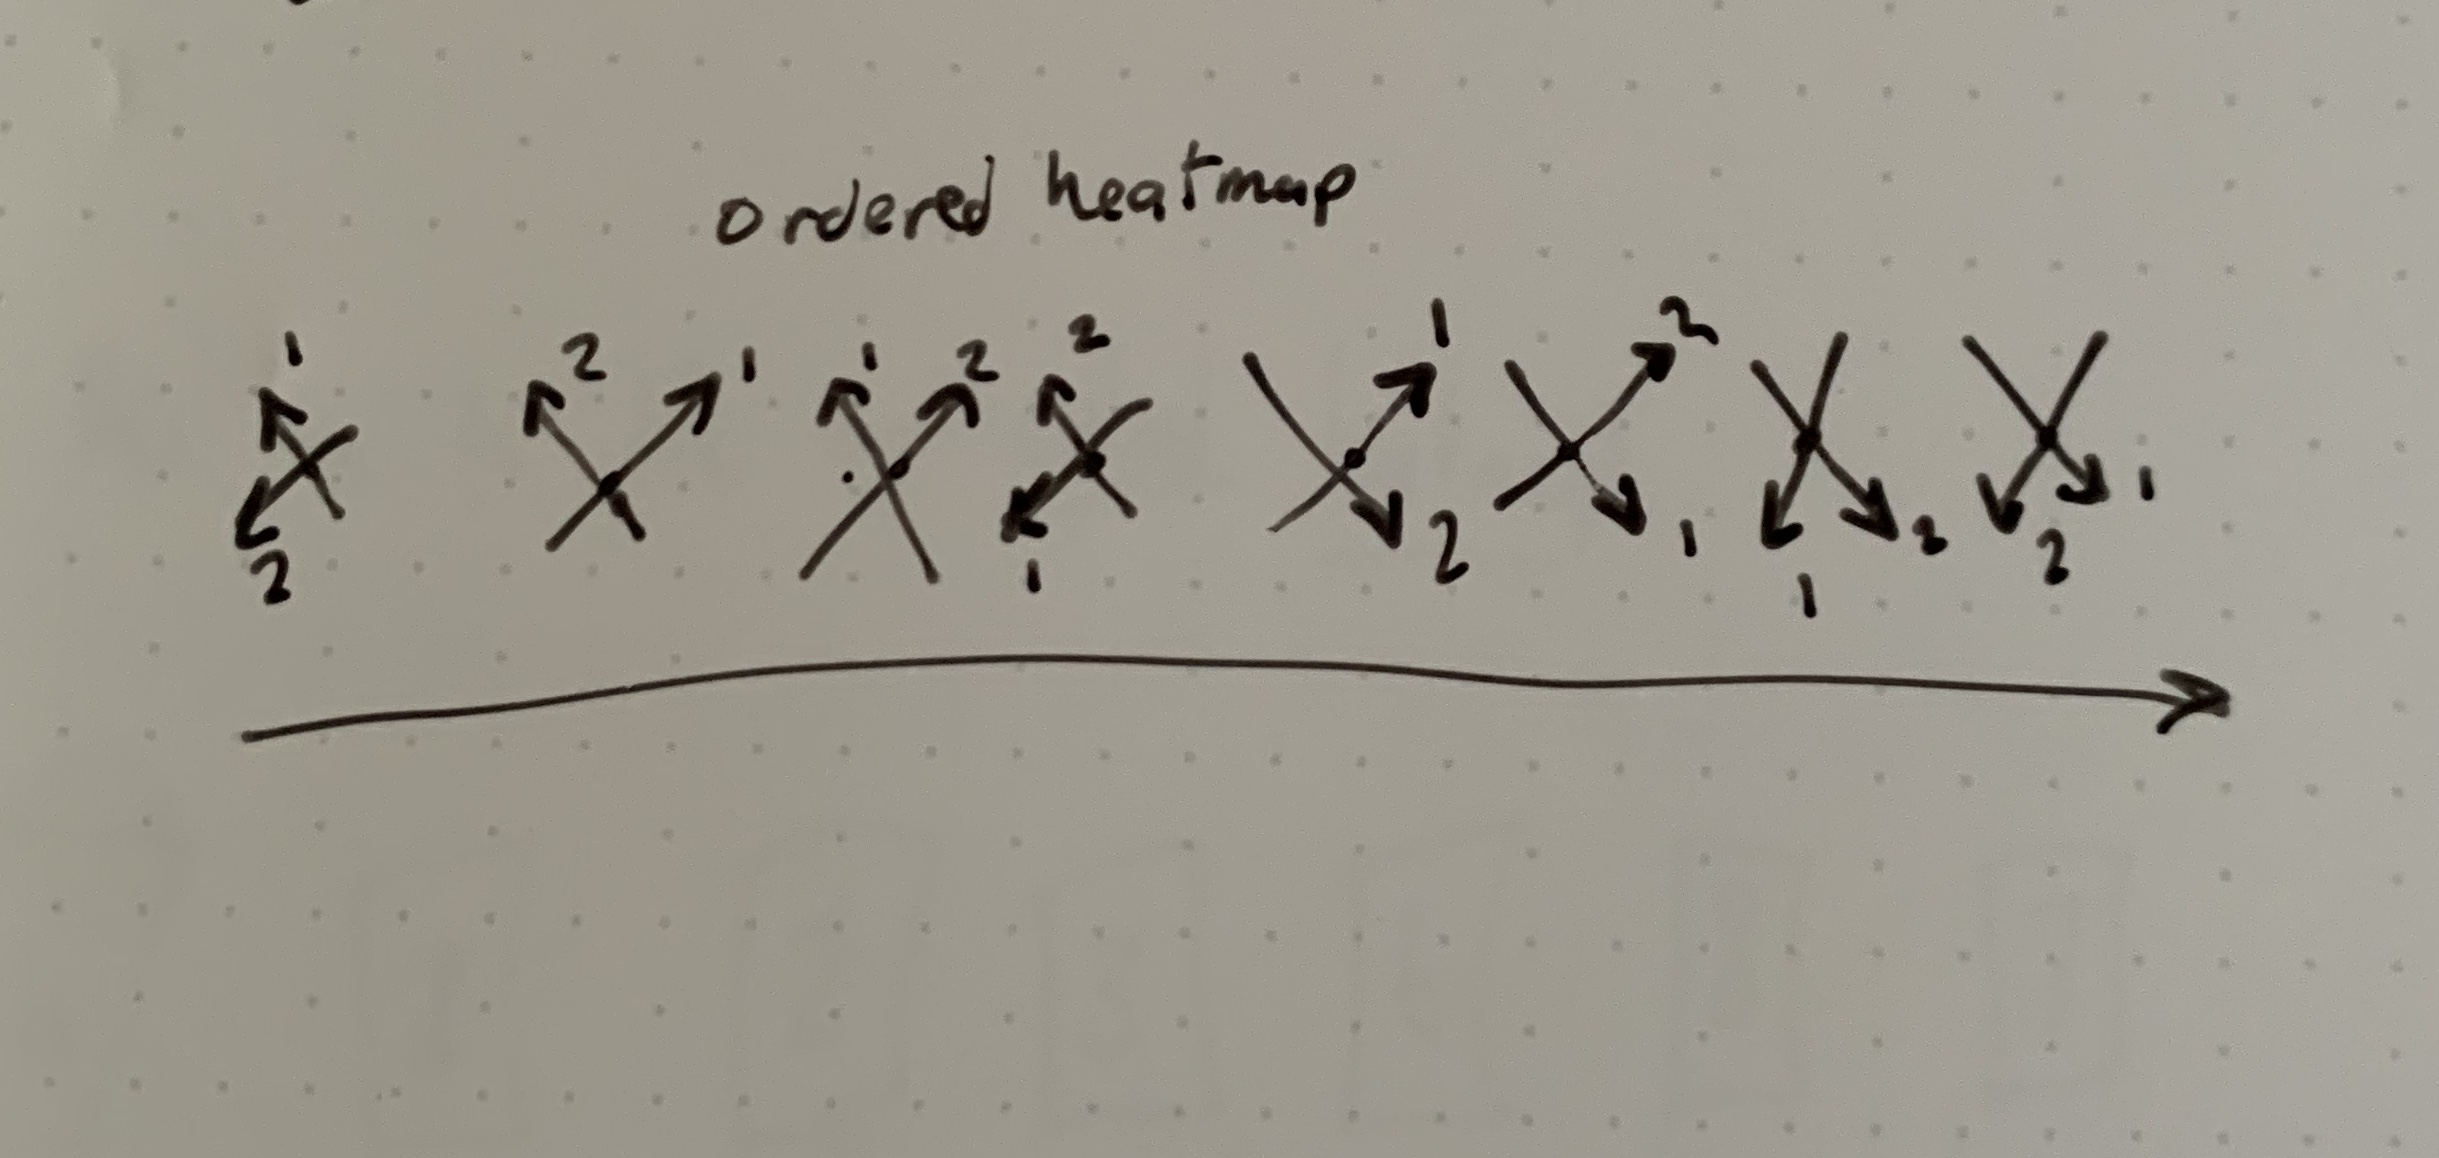 ordered heatmap
1 2 1 2 2 1 2 1
2 1 2 1 1 2